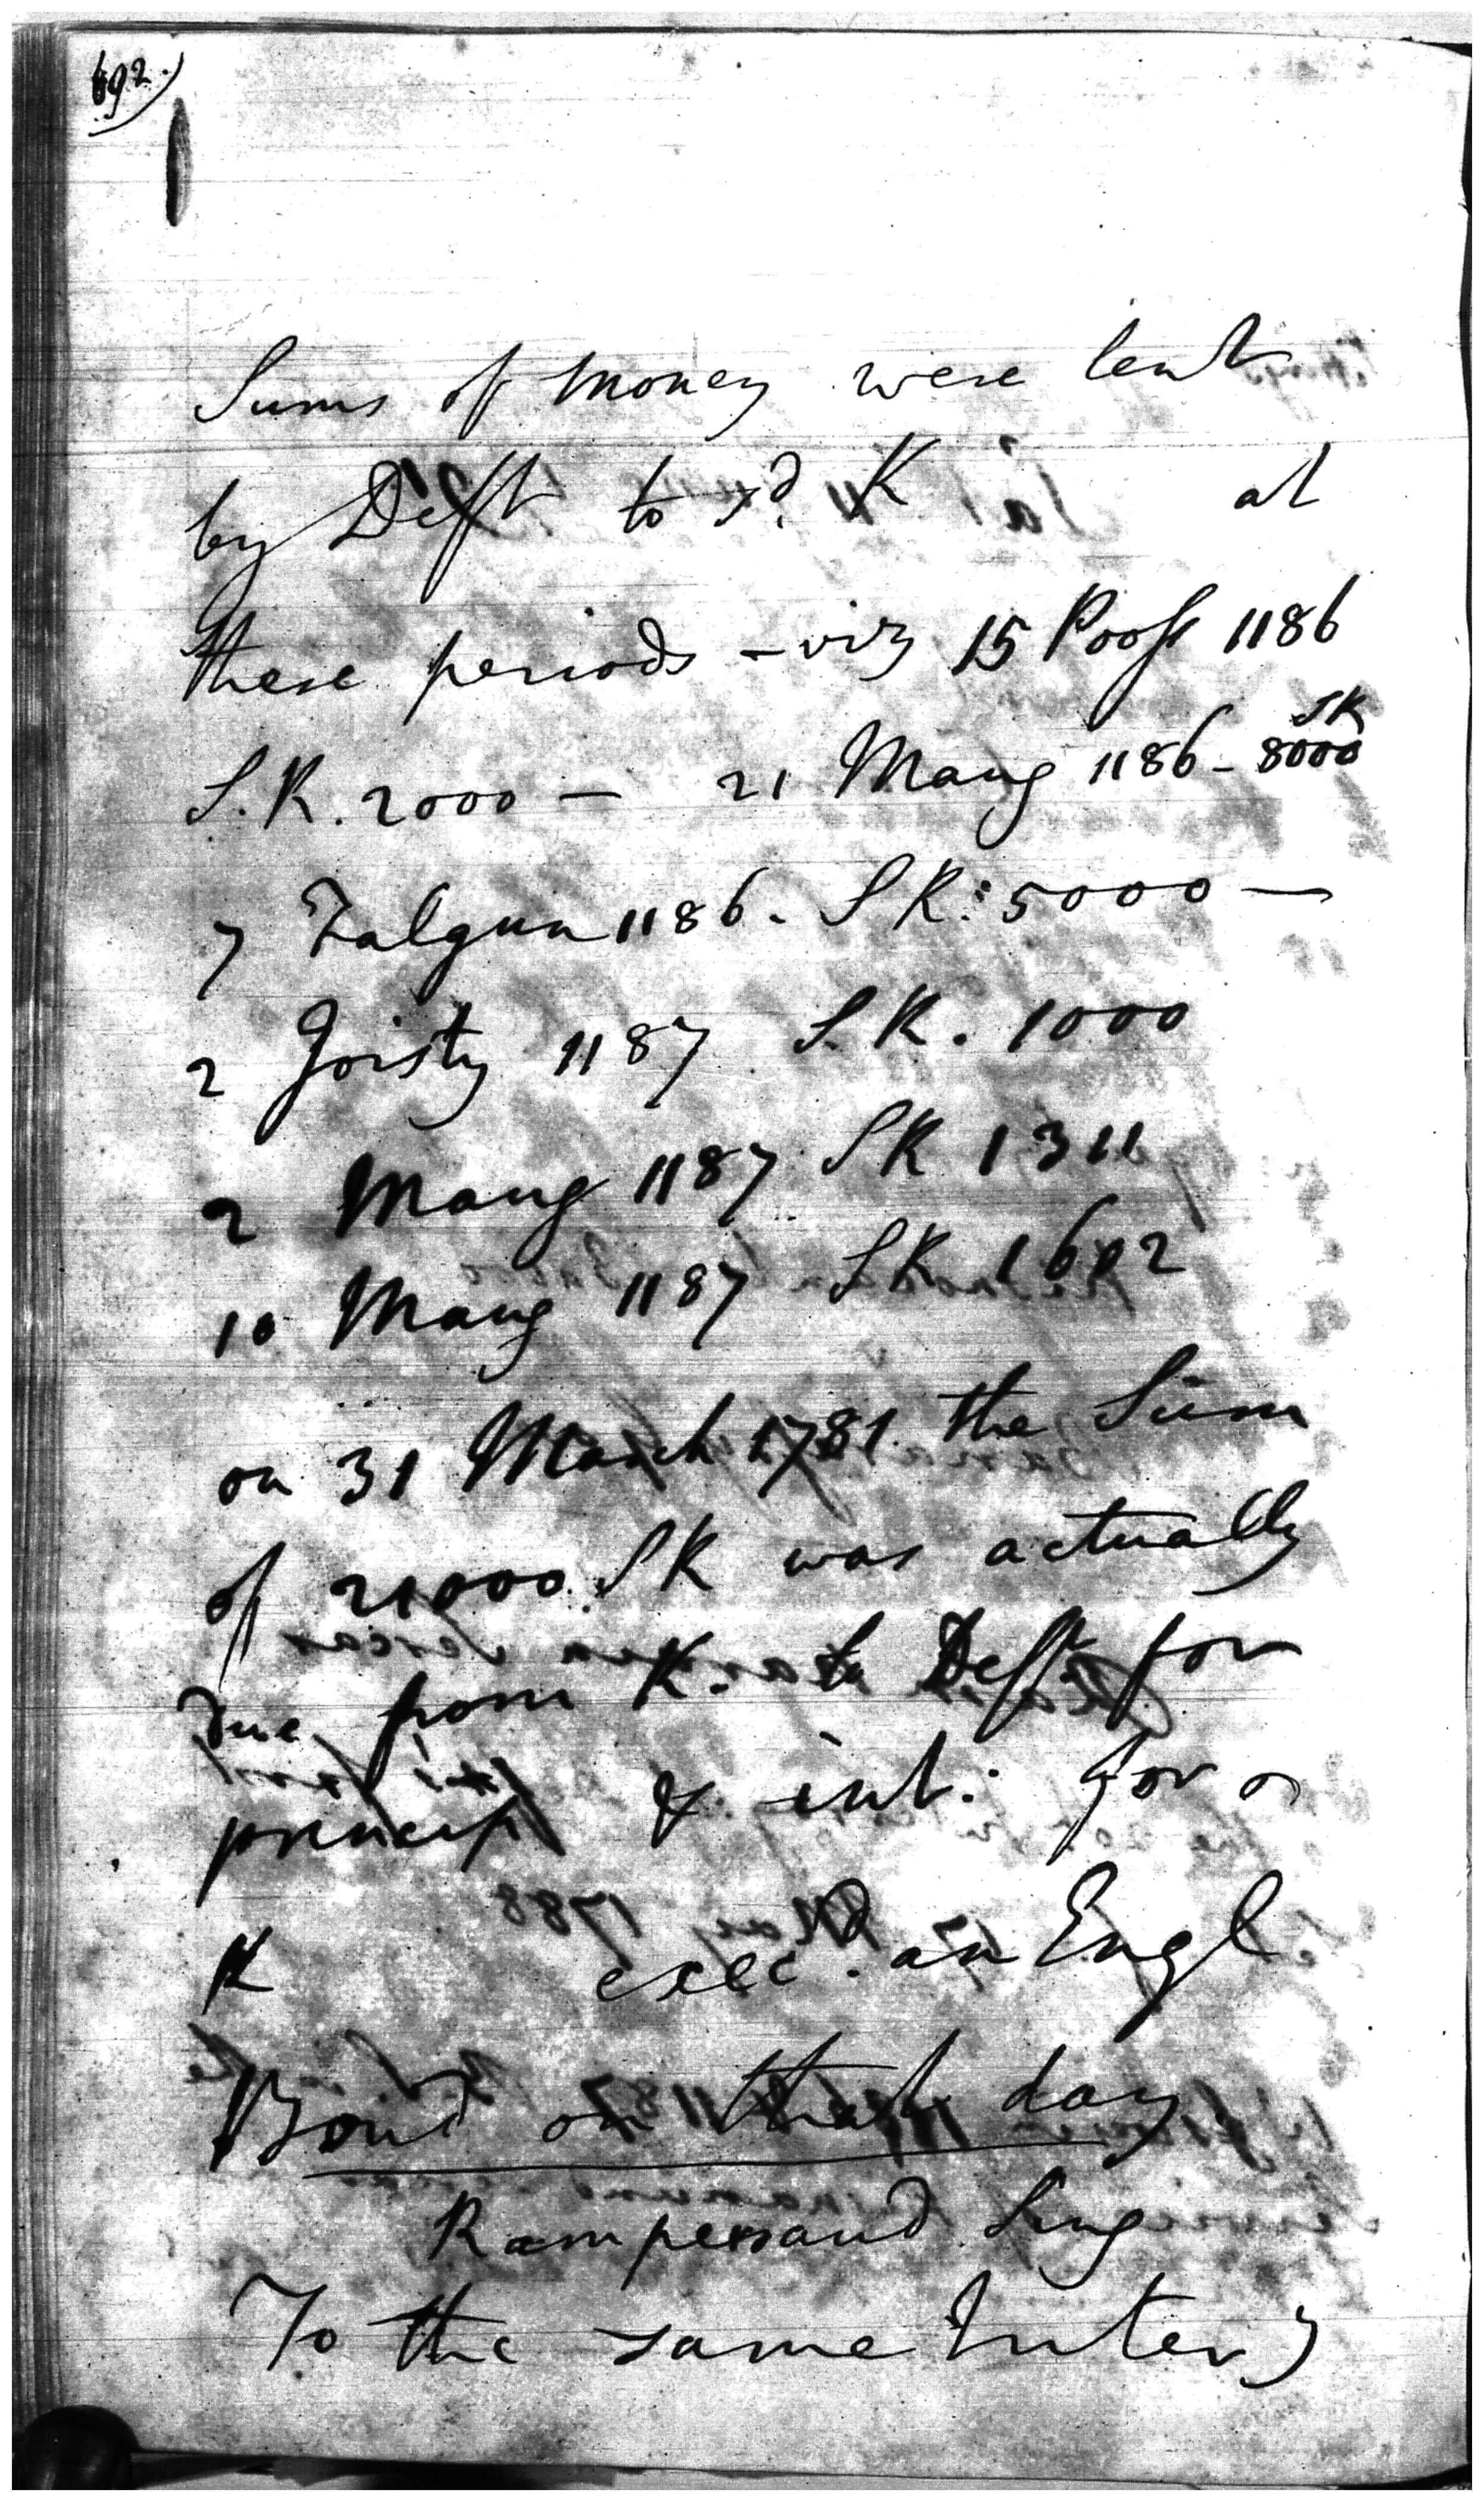 692.
Sums of money were lent
by Deft to sd. K at
these periods - viz 15 Poose 1186
S.R. 2000 — 21 Maug 1186 - SR 8000
7 Falgun 1186. SR: 5000 —
2 Joisty 1187 S.R. 1000
2 Maug 1187 SR 1311
10 Maug 1187 SR 1602
on 31 March 1781 the Sum
of 21000 SR was actually
due from K. to Deft for
princip & int. for
K exec. an Engl
Bond on that day
Rampersaud Sing
To the same Inter)